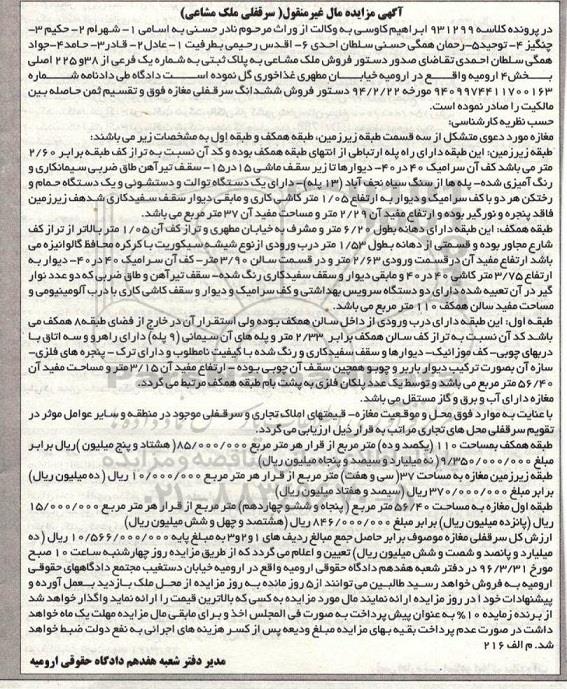 آگهی مزایده مال غیرمنقول( سرقفلی ملک مشاعی)
در پرونده کلاسه ۹۳۱۲۹۹ ابراهیم کاوسی به وکالت از وراث مرحوم نادر حسنی به اسامی ۱- شهرام ۲- حکیم ۳-
چنگیز ۴- توحید۵-رحمان همگی حسنی سلطان احدی ۶- اقدس رحیمی بطرفیت ۱- عادل۲- قادر۳- حامد۴-جواد
همگی سلطان احمدی تقاضای صدور دستور فروش ملک مشاعی به پلاک ثبتی به شماره یک فرعی از ۳۸و ۲۲۵ اصلی
بخش۴ ارومیه واقع در ارومیه خیابان مطهری غذاخوری گل نموده است دادگاه طی دادنامه شماره
۹۴۰۹۹۷۴۴۱۱۷۰۰۱۶۳ مورخه ۹۴/۲/۲۲ دستور فروش ششدانگ سرقفلی مغازه فوق و تقسیم ثمن حاصله بین
مالکیت را صادر نموده است.
حسب نظریه کارشناسی:
مغازه مورد دعوی متشکل از سه قسمت طبقه زیرزمین، طبقه همکف و طبقه اول به مشخصات زیر می باشند:
طبقه زیرزمین: این طبقه دارای راه پله ارتباطی از انتهای طبقه همکف بوده و کد آن نسبت به تراز کف طبقه برابر ۲/۶۰
متر می باشد کف آن سرامیک ۴۰ در ۴۰- دیوارها تا زیر سقف ماشی ۱۵ در۱۵- سقف تیرآهن طاق ضربی سیمانکاری و
رنگ آمیزی شده- پله ها از سنگ سیاه نجف آباد (۱۳ پله)- دارای یک دستگاه توالت و دستشوئی و یک دستگاه حمام و
رختکن هر دو با کف سرامیک و دیوار به ارتفاع ۱/۰۵ متر کاشی کاری و مابقی دیوار سقف سفیدکاری شدهف زیرزمین
فاقد پنجره و نورگیر بوده و ارتفاع مفید آن ۲/۲۹ متر و مساحت مفید آن ۳۷ متر مربع می باشد.
طبقه همکف: این طبقه دارای دهانه بطول ۶/۲۰ متر و مشرف به خیابان مطهری و تراز کف آن ۱/۰۵ متر بالاتر از تراز کف
شارع مجاور بوده و قسمتی از دهانه بطول ۱/۵۳ متر درب ورودی ازنوع شیشه سیکوریت با کرکره محافظ گالوانیزه می
باشد ارتفاع مفید آن درقسمت ورودی ۲/۶۳ متر و در قسمت سالن ۳/۹۰ متر- کف آن سرامیک ۴۰ در ۴۰- دیوار به
ارتفاع ۳/۷۵ متر کاشی ۴۰ در ۴۰ و مابقی دیوار و سقف سفیدکاری رنگ شده- سقف تیرآهن و طاق ضربی که دو عدد نوار
گیر در آن تعبیه شده دارای دو دستگاه سرویس بهداشتی و کف سرامیک و دیوار و سقف کاشی کاری با درب آلومینیومی و
مساحت مفید سالن همکف ۱۱۰ متر مربع می باشد.
طبقه اول: این طبقه دارای درب ورودی از داخل سالن همکف بوده ولی استقرار آن در خارج از فضای طبقه۸ همکف می
باشد کد آن نسبت به تراز کف سالن همکف برابر ۲/۳۳ متر و پله های آن سیمانی (۹ پله) دارای راهرو و سه اتاق با
دربهای چوبی- کف موزائیک- دیوارها و سقف سفیدکاری و رنگ شده با کیفیت نامطلوب و دارای ترک - پنجره های فلزی-
سازه آن بصورت ترکیب دیوار باربر و چوب و همچنین سقف آن چوبی بوده - ارتفاع مفید آن ۳/۱۵ متر و مساحت مفید آن
۵۶/۴۰ متر مربع می باشد و توسط یک عدد پلکان فلزی به پشت بام طبقه همکف مرتبط می گردد.
مغازه دارای آب و برق و گاز مستقل می باشد.
با عنایت به موارد فوق محل و موقعیت مغازه- قیمتهای املاک تجاری و سرقفلی موجود در منطقه و سایر عوامل موثر در
تقویم سرقفلی محل های تجاری مراتب به قرار ذیل ارزیابی می گردد.
طبقه همکف بمساحت ۱۱۰ (یکصد و ده) متر مربع از قرار هر متر مربع ۸۵/۰۰۰/۰۰۰( هشتاد و پنج میلیون )ریال برابر
مبلغ ۹/۳۵۰/۰۰۰/۰۰۰( نه میلیارد و سیصد و پنجاه میلیون ریال)
طبقه زیرزمین مغازه به مساحت ۳۷( سی و هفت) متر مربع از قرار هر متر مربع ۱۰/۰۰۰/۰۰۰ ریال (ده میلیون ریال)
برابر مبلغ ۳۷۰/۰۰۰/۰۰۰ ریال(سیصد و هفتاد میلیون ریال)
طبقه اول مغازه به مساحت ۵۶/۴۰ متر مربع ( پنجاه و شش و چهاردهم) متر مربع از قرار هر متر مربع ۱۵/۰۰۰/۰۰۰
ریال (پانزده میلیون ریال) برابر مبلغ ۸۴۶/۰۰۰/۰۰۰ ریال (هشتصد و چهل و شش میلیون ریال)
ارزش کل سرقفلی مغازه موصوف برابر حاصل جمع مبالغ ردیف های ۱و۲و۳ به مبلغ پایه ۱۰/۵۶۶/۰۰۰/۰۰۰ ریال ( ده
میلیارد و پانصد و شصت و شش میلیون ریال) تعیین و اعلام می گردد که از طریق مزایده روز چهارشنبه ساعت ۱۰ صبح
مورخ ۹۶/۳/۳۱ در دفتر شعبه هفدهم دادگاه حقوقی ارومیه واقع در ارومیه خیابان دستغیب مجتمع دادگاههای حقوقی
ارومیه به فروش خواهد رسید طالبین می توانند از۵ روز مانده به روز مزایده از محل ملک بازدید بعمل آورده و
پیشنهادات خود ا در روز مزایده ارائه نمایند مال مورد مزایده به کسی که بالاترین قیمت را ارائه نماید واگذار خواهد شد
از برنده زمایده ۱۰% به عنوان پیش پرداخت به صورت فی المجلس اخذ و برای مابقی مال مزایده مهلت یک ماه خواهد
داشت در صورت عدم پرداخت بقیه بهای مزایده مبلغ ودیعه پس از کسر هزینه های اجرائی به نفع دولت ضبط خواهد
شد. م الف ۲۱۶
مدیر دفتر شعبه هفدهم دادگاه حقوقی ارومیه